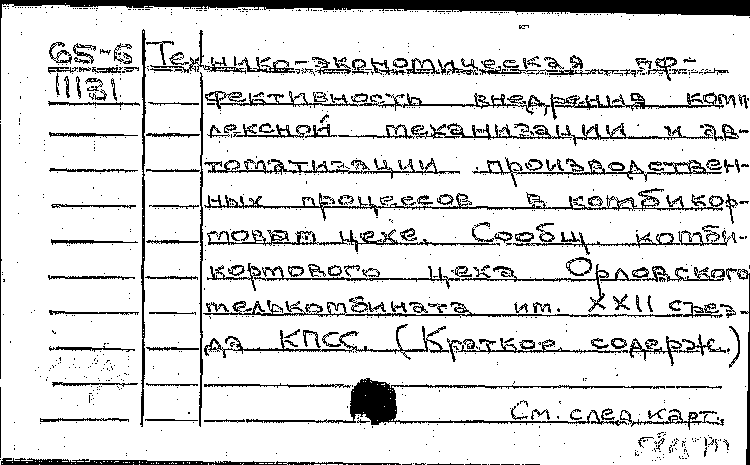 65-6 Технико-экономическая эф-
11131
фективность внедрения комп
лексной механизации и ав-
томатизации производствен-
ных процессов в комбикор-
мовым цехе. Сообщ. комби-
кормового цеха Орловского
мелькомбината им. XXII съез-
да КПСС. (Краткое содерж.)
См. след. карт.